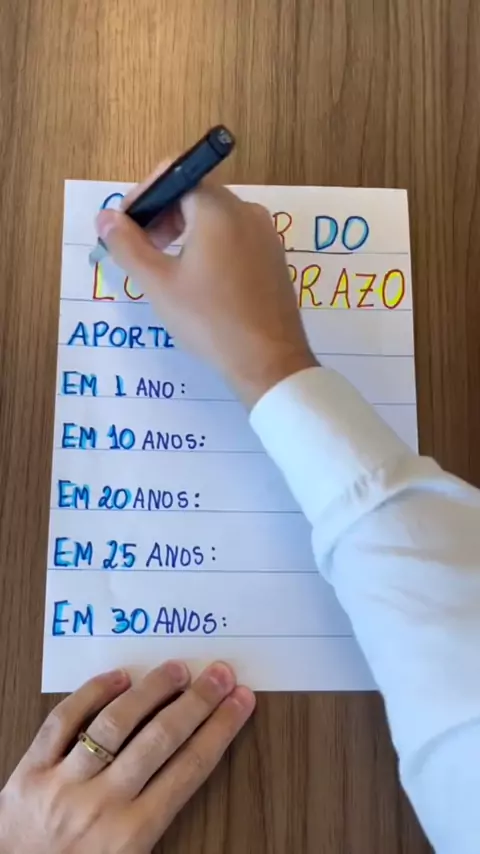 DO
APORTE
EM 1 ANO:
EM 10 ANOS:
EM 20 ANOS:
EM 25 ANOS:
EM 30 ANOS: